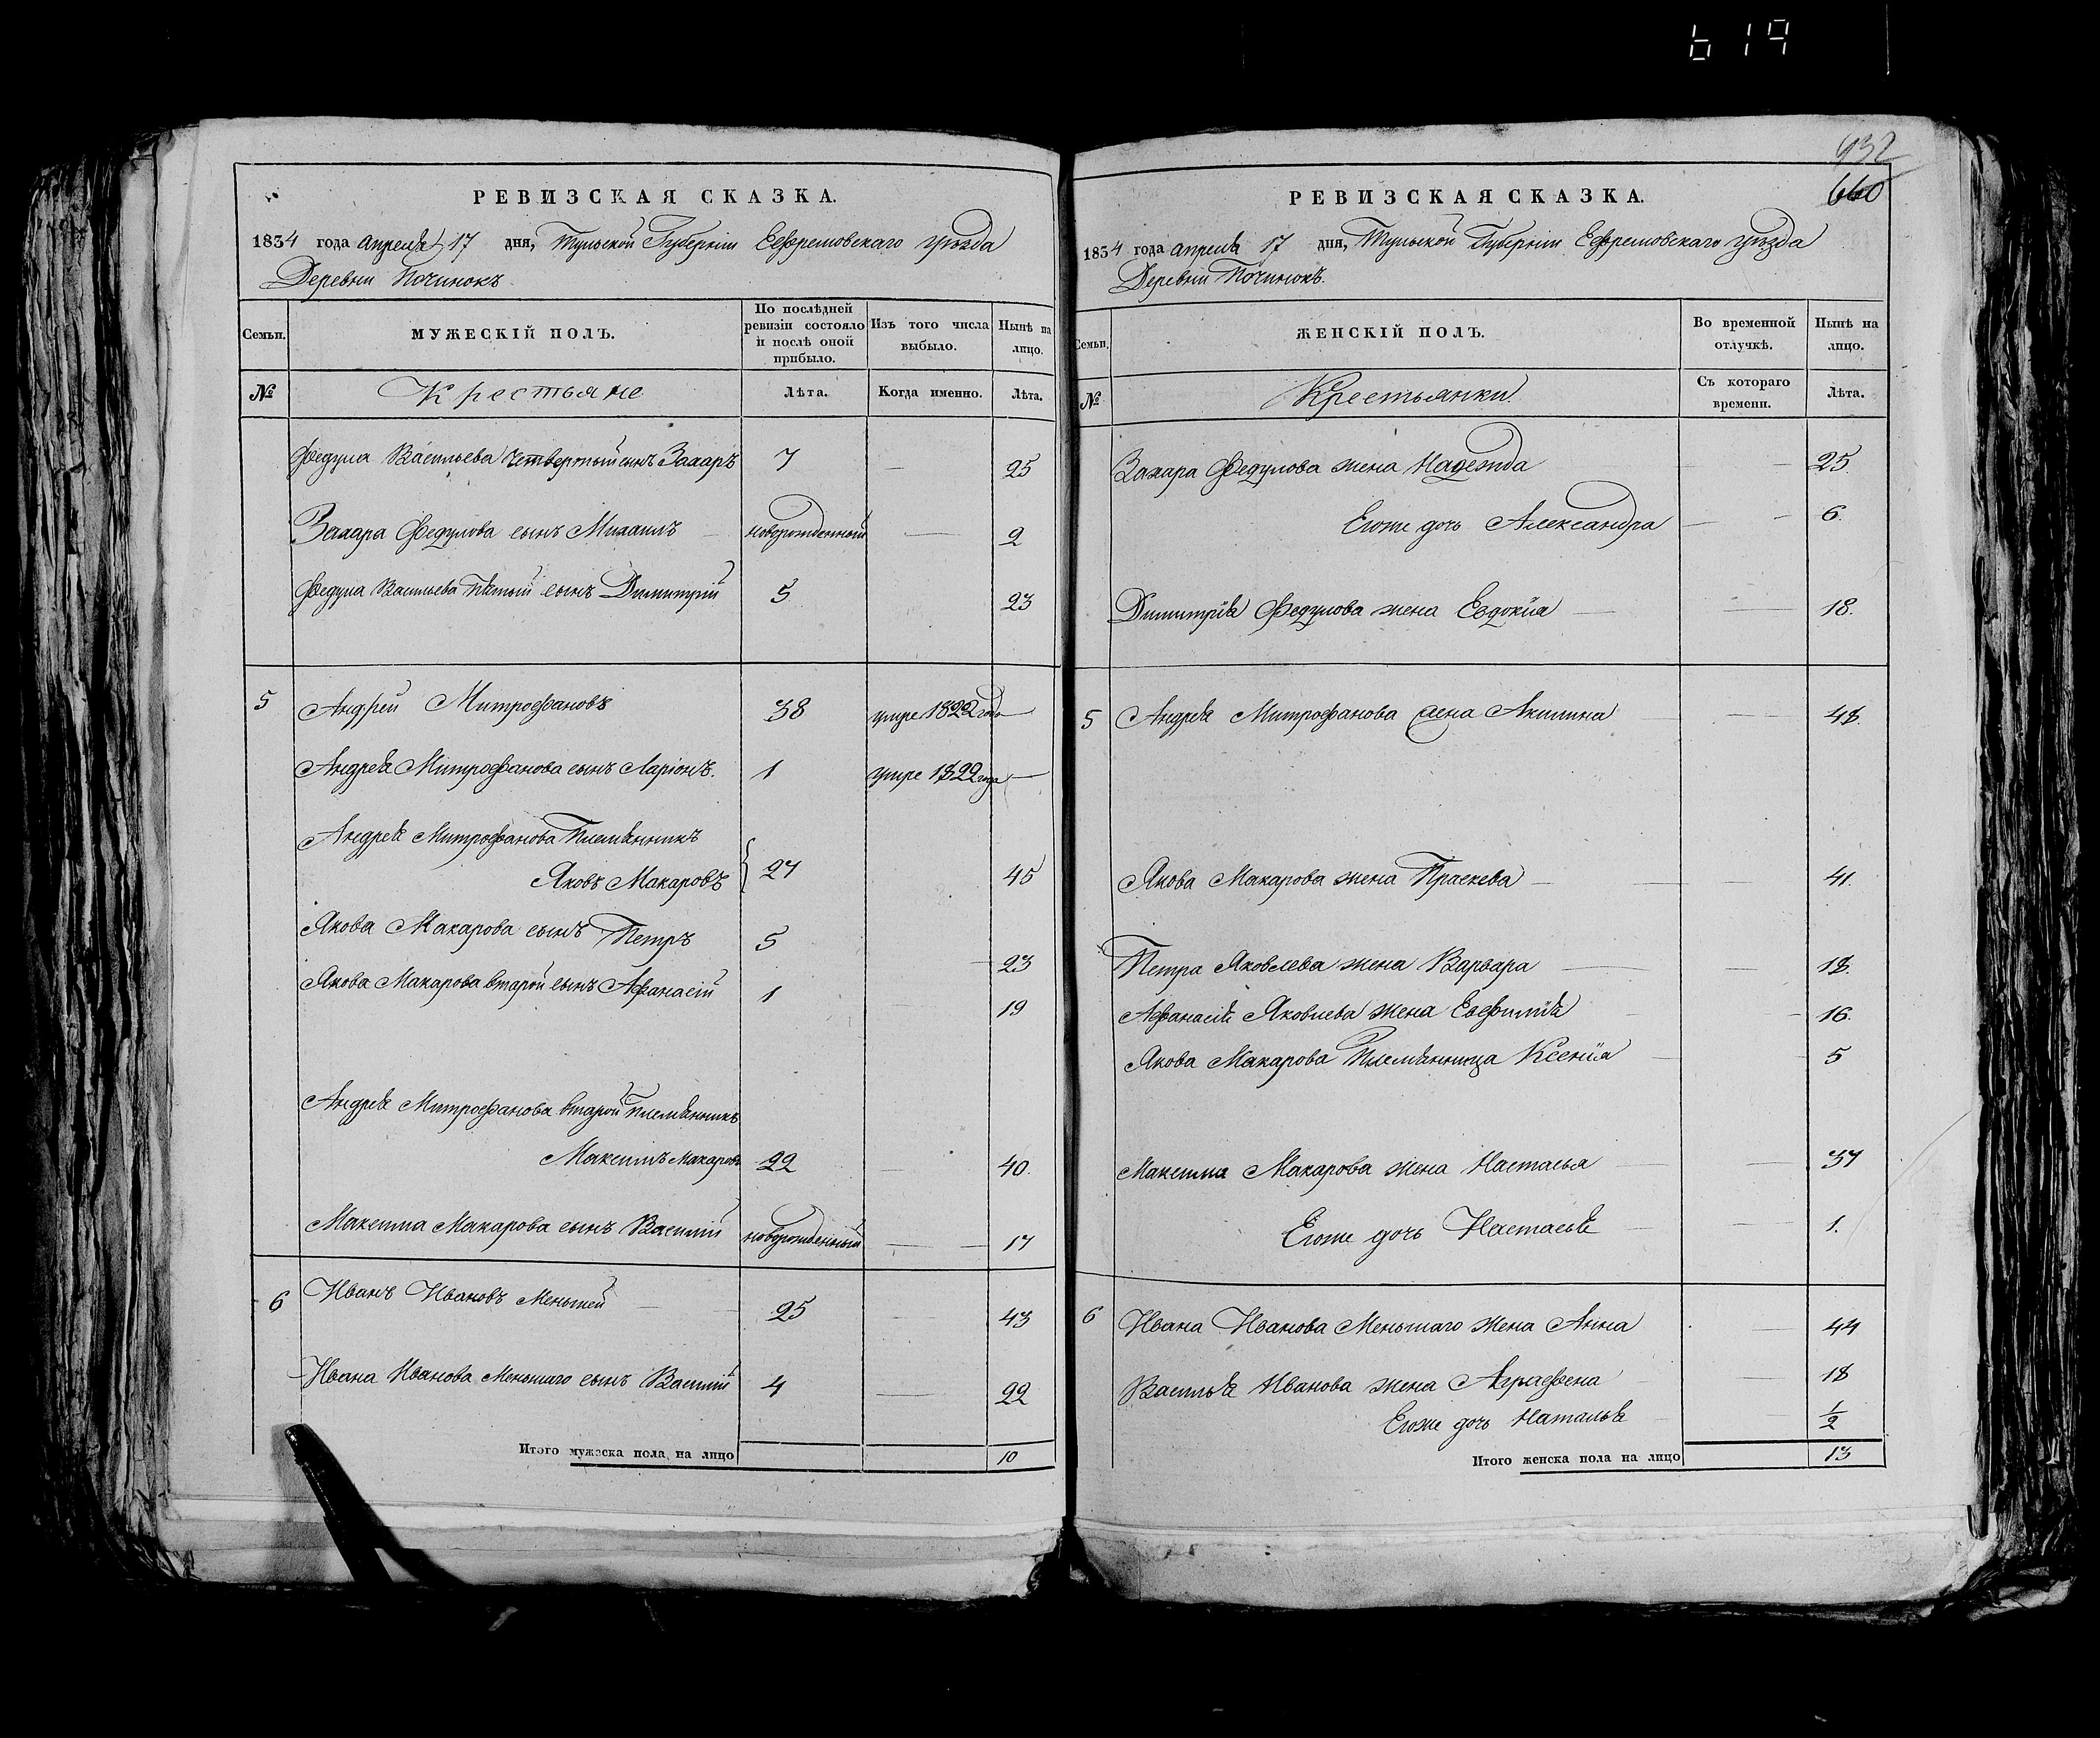 619
932
660
РЕВИЗСКАЯ СКАЗКА.
1834 года апреля 17 дня, Тульской Губернии Ефремовскаго уѣзда
Деревни Починокъ
Семьи.
МУЖЕСКІЙ ПОЛЪ.
По послѣдней ревизіи состояло и послѣ оной прибыло.
Изъ того числа выбыло.
Нынѣ на лицо.
№
Крестьяне
Лѣта.
Когда именно.
Лѣта.
Федула Васильева четвертый сынъ Захаръ 7 — 25
Захара Федулова сынъ Михаилъ новорожденный — 2
Федула Васильева пятый сынъ Димитрій 5 23
5 Андрей Митрофановъ 38 умре 1822 года —
Андрея Митрофанова сынъ Ларіонъ. 1 умре 1822 года —
Андрея Митрофанова Племянникъ
Яковъ Макаровъ 27 45
Якова Макарова сынъ Петръ 5 23
Якова Макарова второй сынъ Афанасій 1 19
Андрея Митрофанова второй племянникъ
Максимъ Макаровъ 22 40.
Максима Макарова сынъ Василий новорожденный — 17
6 Иванъ Ивановъ Меньшей 25 43
Ивана Иванова Меньшаго сынъ Василий 4 — 22
Итого мужеска пола на лицо 10
РЕВИЗСКАЯ СКАЗКА.
1834 года апреля 17 дня, Тульской Губернии Ефремовскаго уѣзда
Деревни Починокъ.
Семьи.
ЖЕНСКІЙ ПОЛЪ.
Во временной отлучкѣ.
Нынѣ на лицо.
№
Крестьянки.
Съ котораго времени.
Лѣта.
Захара Федулова жена Надежда — 25.
Егоже дочь Александра — 6.
Димитрія Федулова жена Евдокія — 18.
5 Андрея Митрофанова жена Акилина — 48.
Якова Макарова жена Праскева — 41.
Петра Яковлева жена Варвара — 18.
Афанасія Яковлева жена Евфимія — 16.
Якова Макарова Племянница Ксенія — 5
Максима Макарова жена Настасья — 37
Егоже дочь Настасья — 1.
6 Ивана Иванова Меньшаго жена Анна — 44
Василья Иванова жена Аграфена — 18
Егоже дочь Наталья — 1/2
Итого женска пола на лицо 13